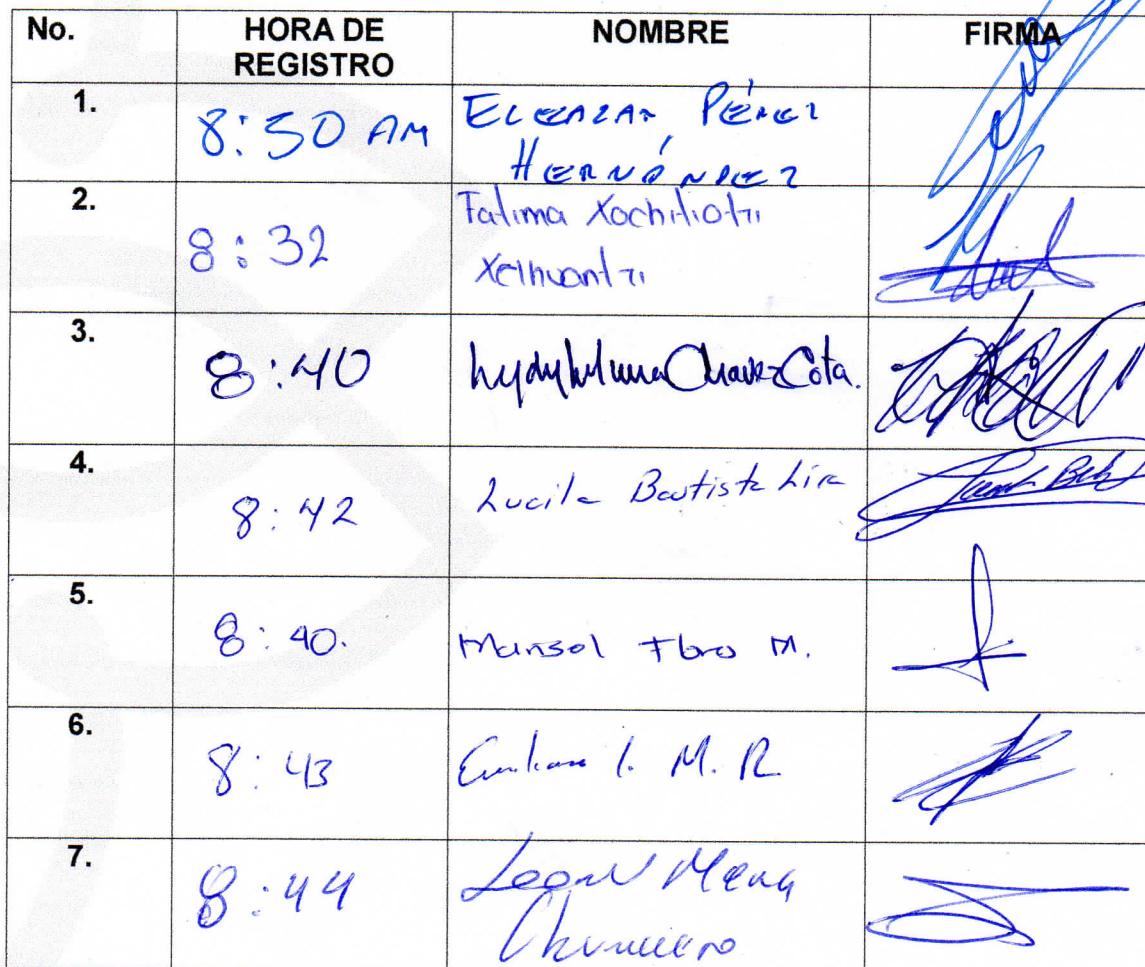 No. HORA DE REGISTRO NOMBRE FIRMA
1. 8:50 AM ELEAZAR PÉREZ
HERNÁNDEZ
2. 8:32 Fatima Xochitiotzi
Xelhuantzi
3. 8:40 Chavez Cota.
4. 8:42 Lucila Bautista Lira
5. 8:40. Marisol M.
6. 8:43 I. M. R.
7. 8:44 Mena